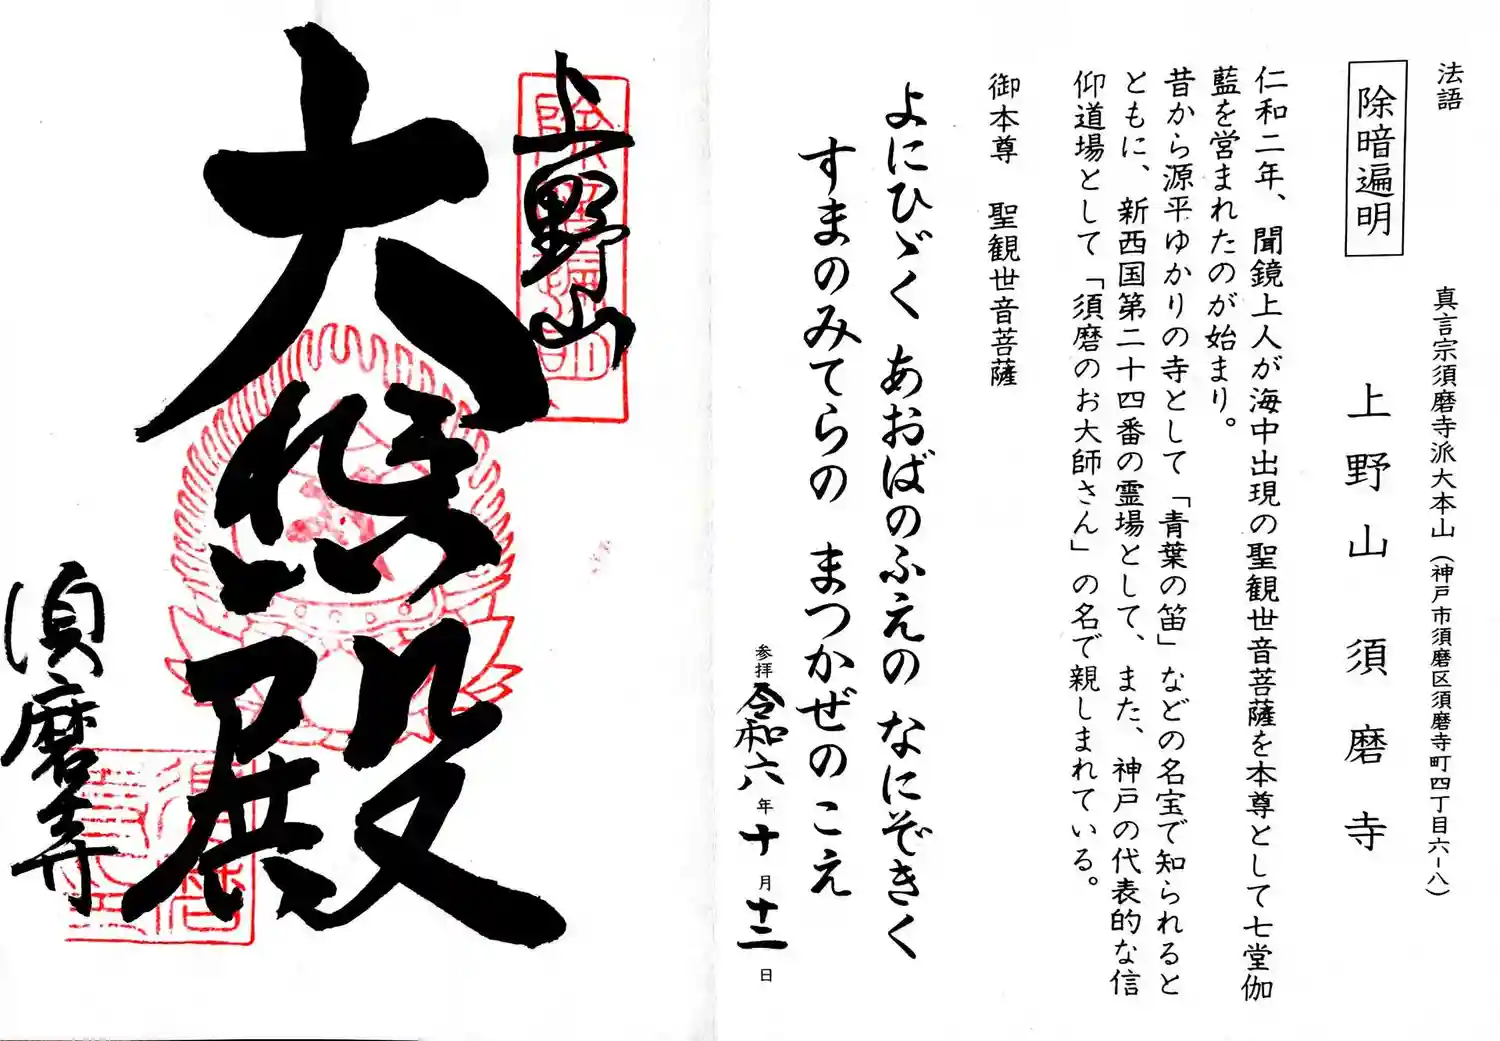 法語
除暗遍明
真言宗須磨寺派大本山（神戸市須磨区須磨寺町四丁目六ー八）
上野山 須磨寺
仁和二年、聞鏡上人が海中出現の聖観世音菩薩を本尊として七堂伽
藍を営まれたのが始まり。
昔から源平ゆかりの寺として「青葉の笛」などの名宝で知られると
ともに、新西国第二十四番の霊場として、また、神戸の代表的な信
仰道場として「須磨のお大師さん」の名で親しまれている。
御本尊 聖観世音菩薩
よにひゞく あおばのふえの なにぞきく
すまのみてらの まつかぜのこえ
参拝 令和六年十月十二日
上野山
大悲殿
須磨寺